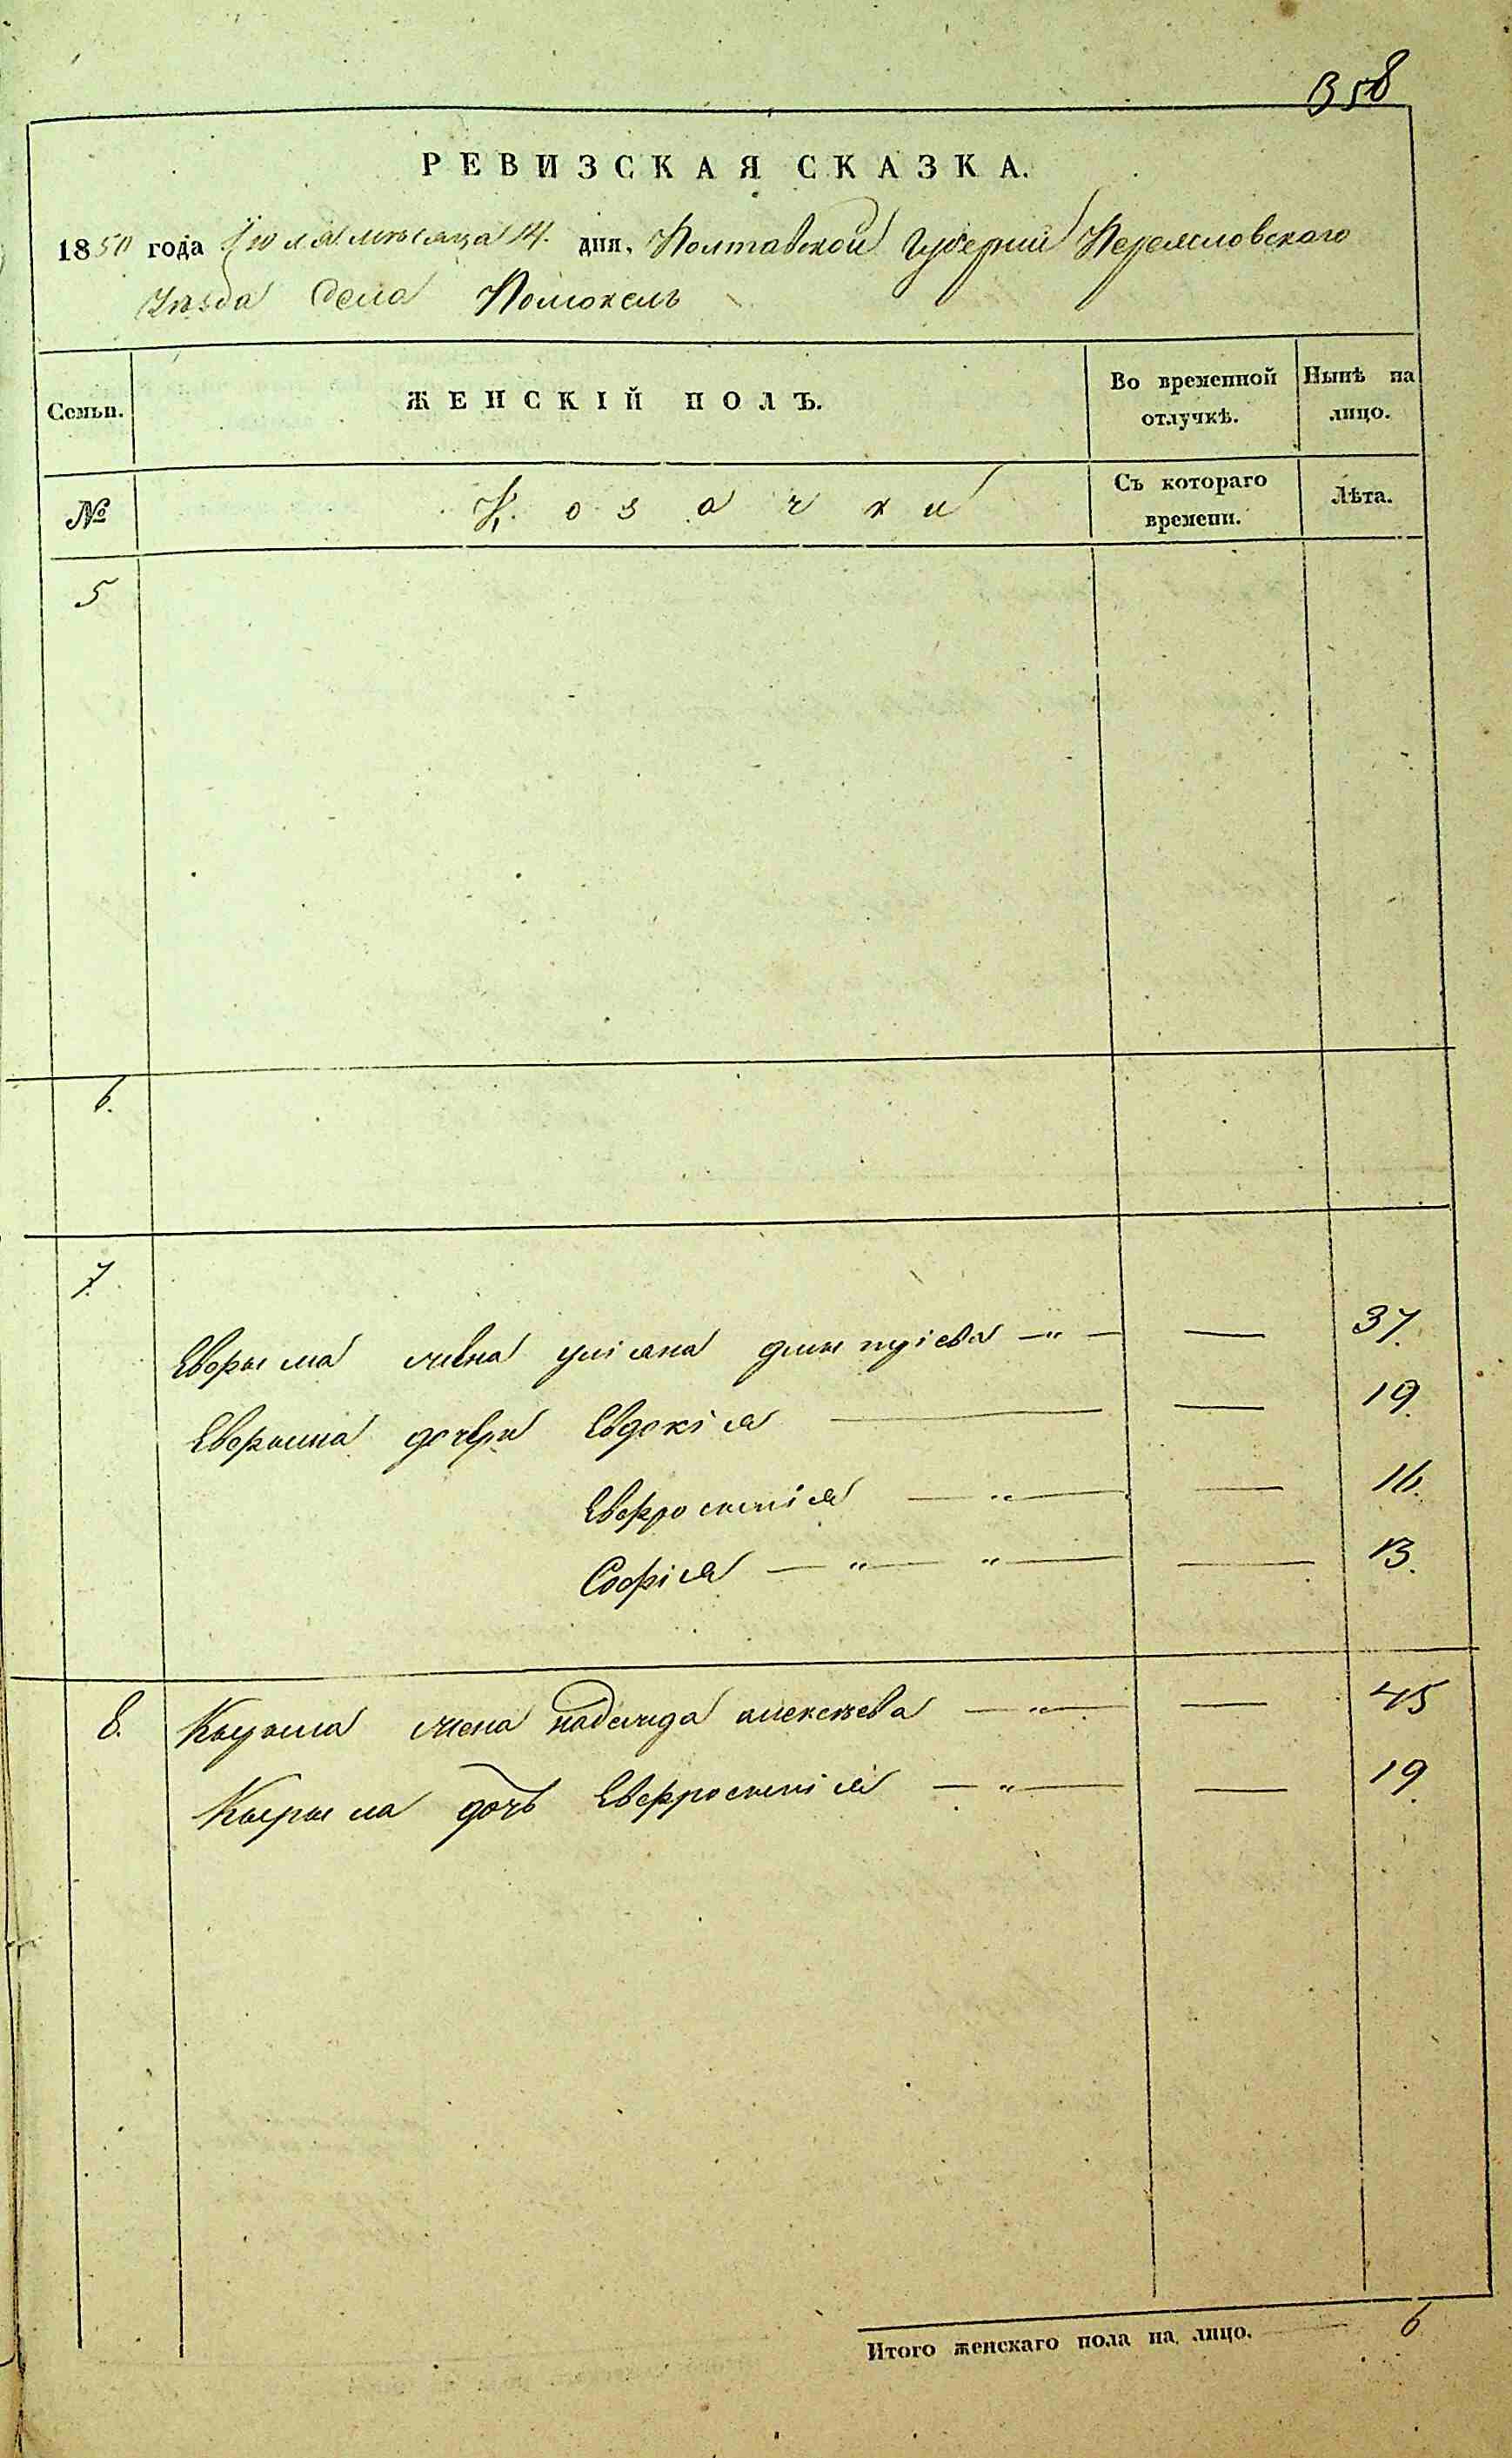 1358
РЕВИЗСКАЯ СКАЗКА.
1850 года Іюля мѣсяца 14. дня, Полтавской Губерніи Переясловского
Уѣзда Села Помокель
Семьи.
ЖЕНСКІЙ ПОЛЪ.
Во временной отлучкѣ.
Ныпѣ на лицо.
№
Козачки
Съ котораго времени.
Лѣта.
5
6.
7.
жена уліяна дмитріева — " — — 37.
дочери Евдокія — — 19.
Евфросинія — " — — 16.
Софія — " — " — — 13.
8. жена надежда алексѣева — " — — 45
дочь Евфросинія — " — — 19.
Итого женскаго пола на лицо. 6